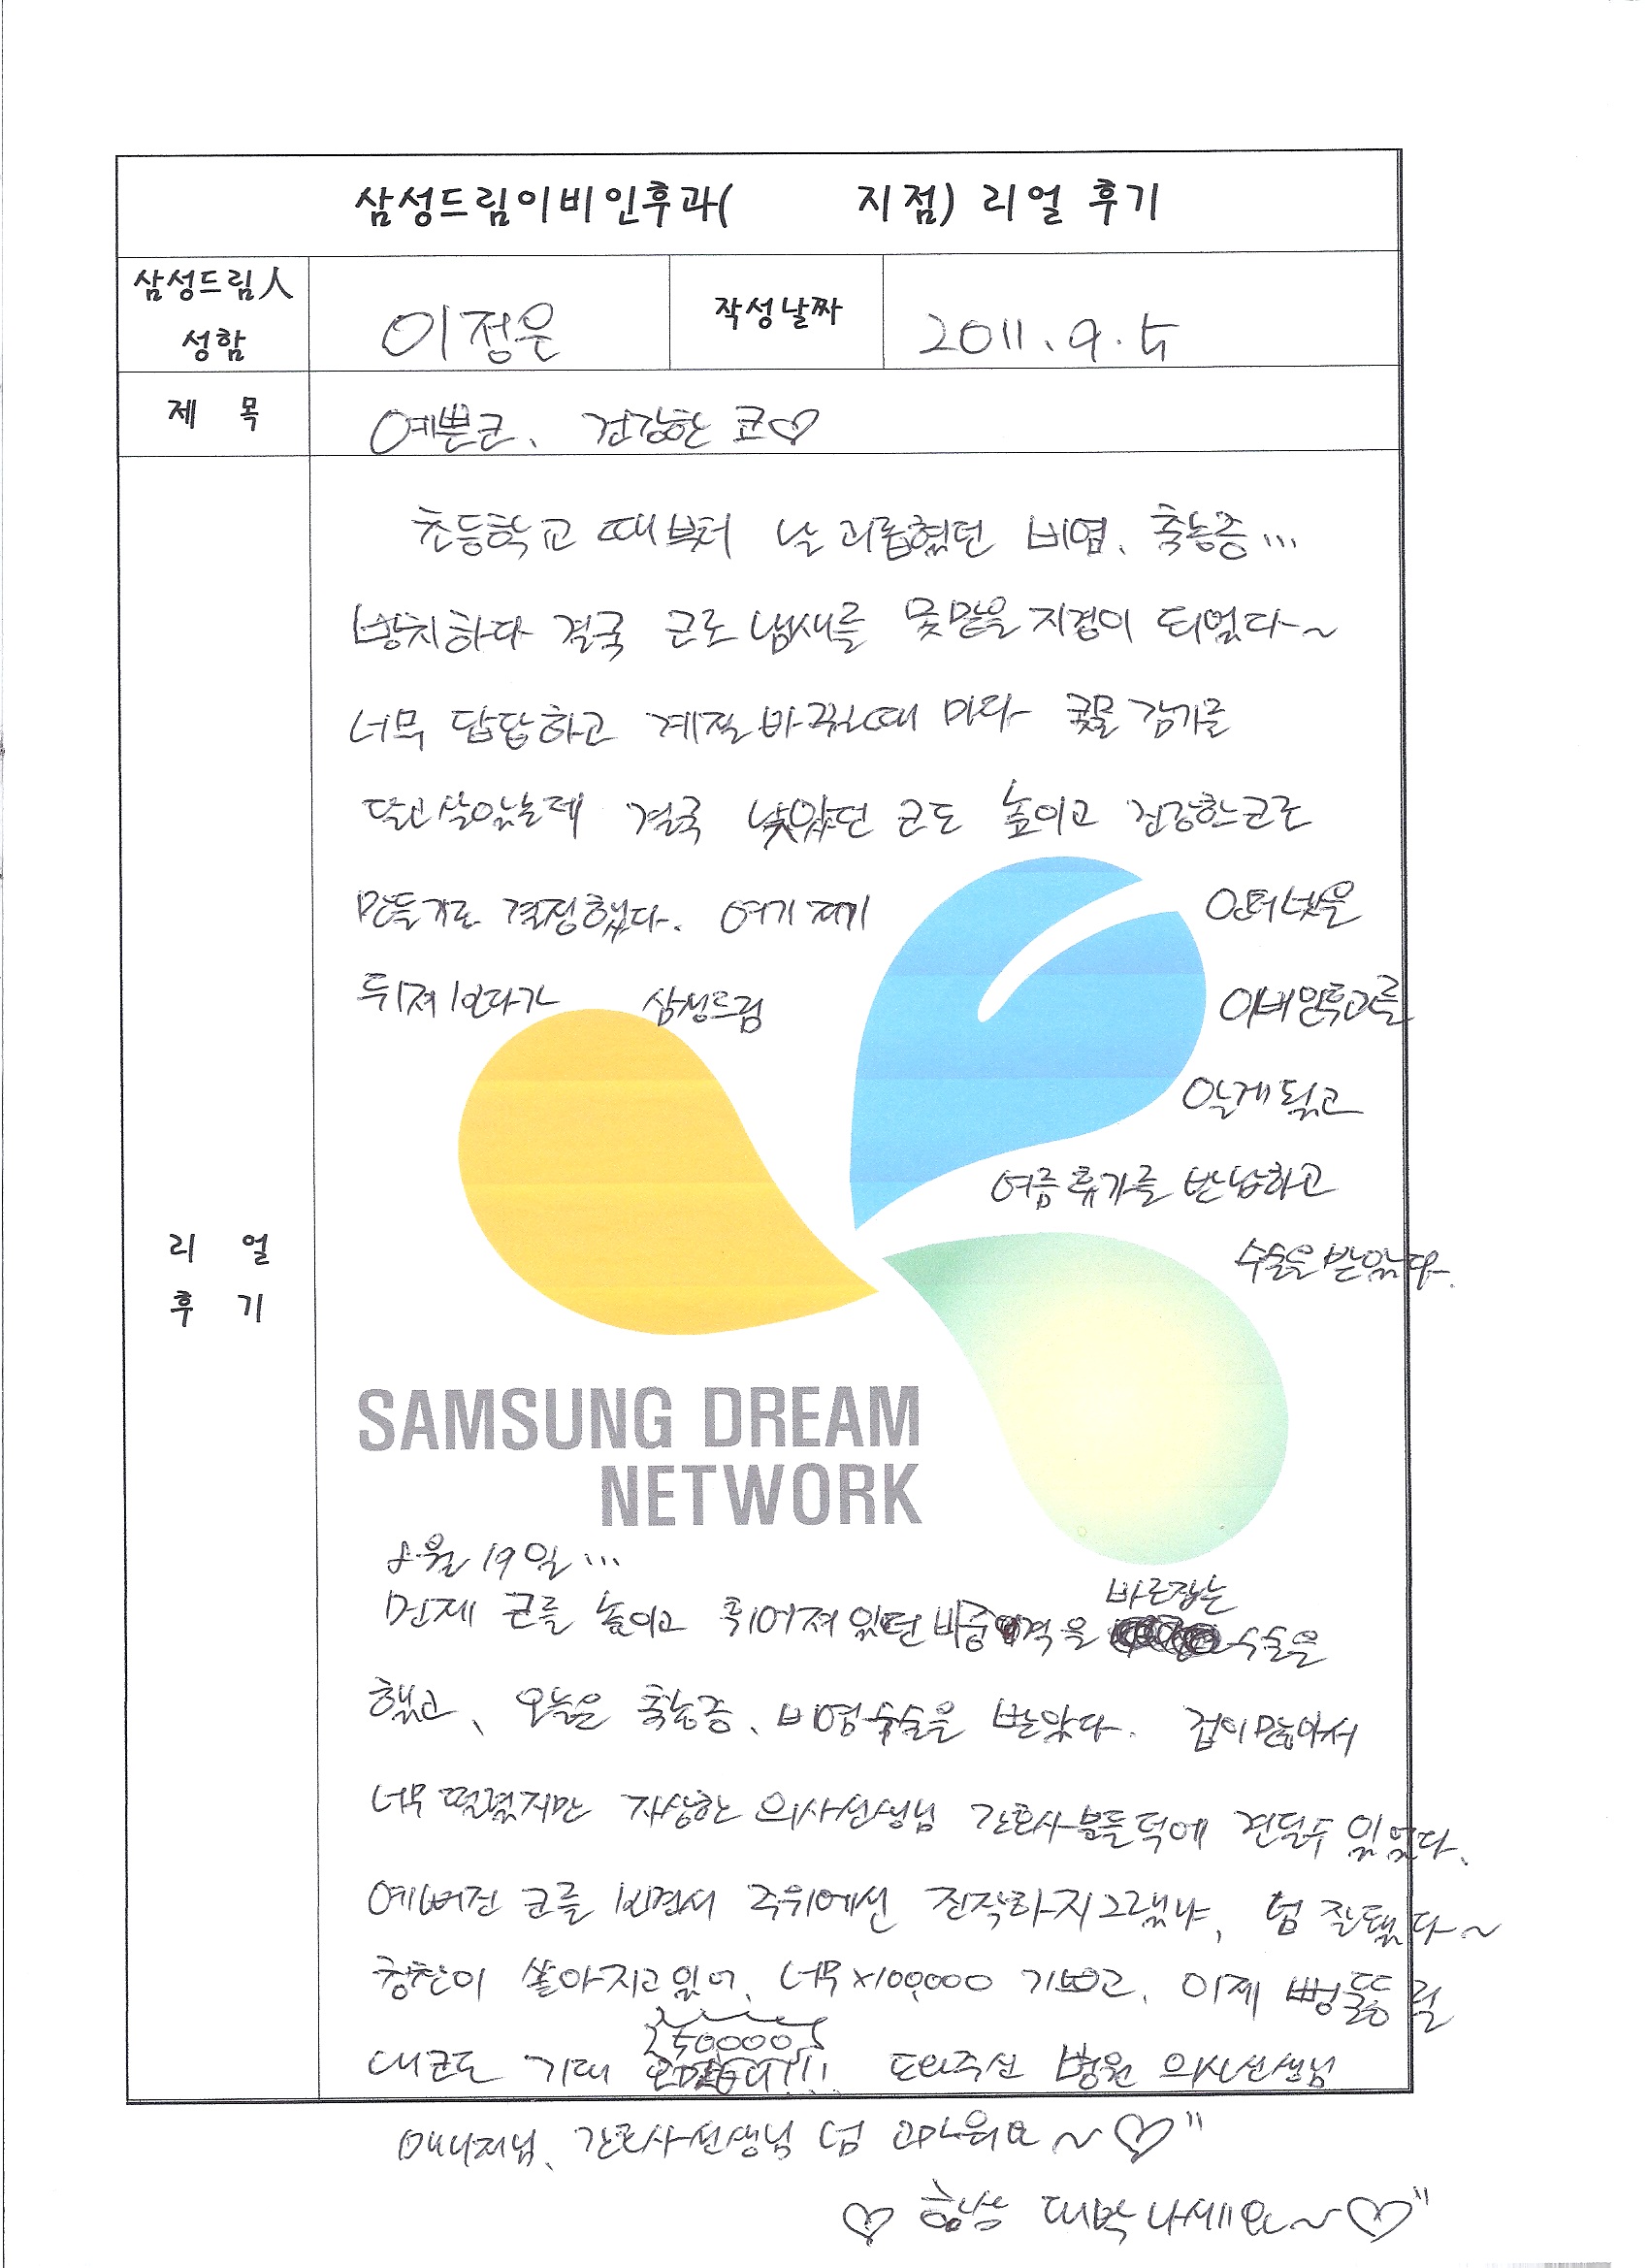 삼성드림이비인후과(          지점) 리얼 후기
삼성드림人
성함
이정은
작성날짜
2011. 9. 5
제 목
예쁜코, 건강한 코♡
리 얼
후 기
초등학교 때부터 날 괴롭혔던 비염, 축농증...
방치하다 결국 코로 냄새를 못맡을 지경이 되었다~
너무 답답하고 계절바뀔때 마다 콧물 감기를
달고살았는데 결국 낮았던 코도 높이고 건강한코로
만들기로 결정했다. 여기저기 인터넷을
뒤져보다가 삼성드림 이비인후과를
알게됬고
여름휴가를 반납하고
수술을 받았다.
SAMSUNG DREAM
NETWORK
8월 19일...
먼저 코를 높이고 휘어져있던 비중격을 바로잡는 수술을
했고, 오늘은 축농증, 비염수술을 받았다. 겁이많아서
너무 떨렸지만 자상한 의사선생님 간호사분들덕에 견딜수 있었다.
예뻐진 코를 보면서 주위에선 진작하지그랬냐, 넘 잘됐다~
칭찬이 쏟아지고있어, 너무x100,000 기쁘고, 이제 뻥뚫릴
내코도 기대 50000 !!! 도와주신 병원 의사선생님
매니저님, 간호사선생님 넘 고마워요~♡"
♡ 항상 대박나세요~♡"